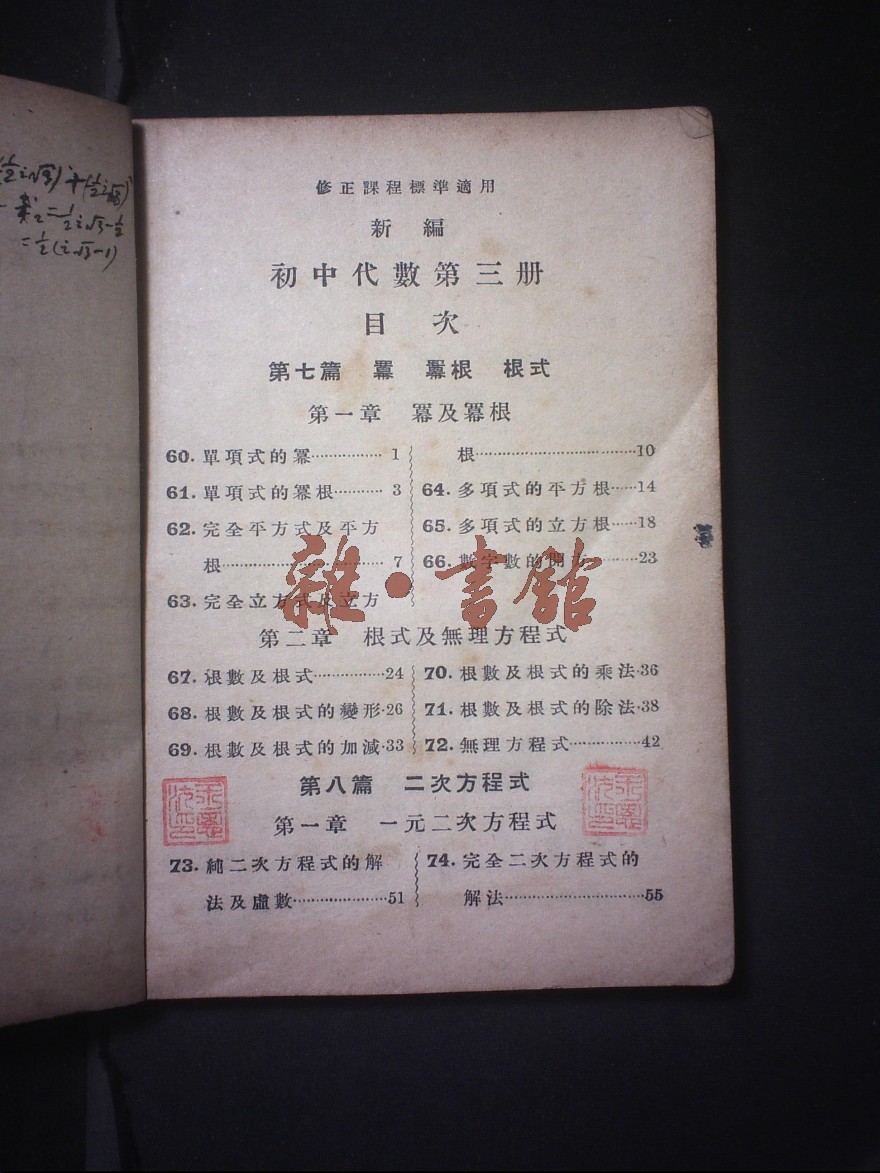 修正課程標準適用
新編
初中代數第三册
目次
第七篇 冪 冪根 根式
第一章 冪及冪根
60. 單項式的冪……………… 1
61. 單項式的冪根………… 3
62. 完全平方式及平方
根…………………………… 7
63. 完全立方式及立方
根……………………………10
64. 多項式的平方根……14
65. 多項式的立方根……18
66. 數字數的開方………23
雜·書館
第二章 根式及無理方程式
67. 根數及根式……………24
68. 根數及根式的變形·26
69. 根數及根式的加減·33
70. 根數及根式的乘法·36
71. 根數及根式的除法·38
72. 無理方程式……………42
第八篇 二次方程式
第一章 一元二次方程式
73. 純二次方程式的解
法及虛數………………51
74. 完全二次方程式的
解法………………………55
=½(i√3-1)